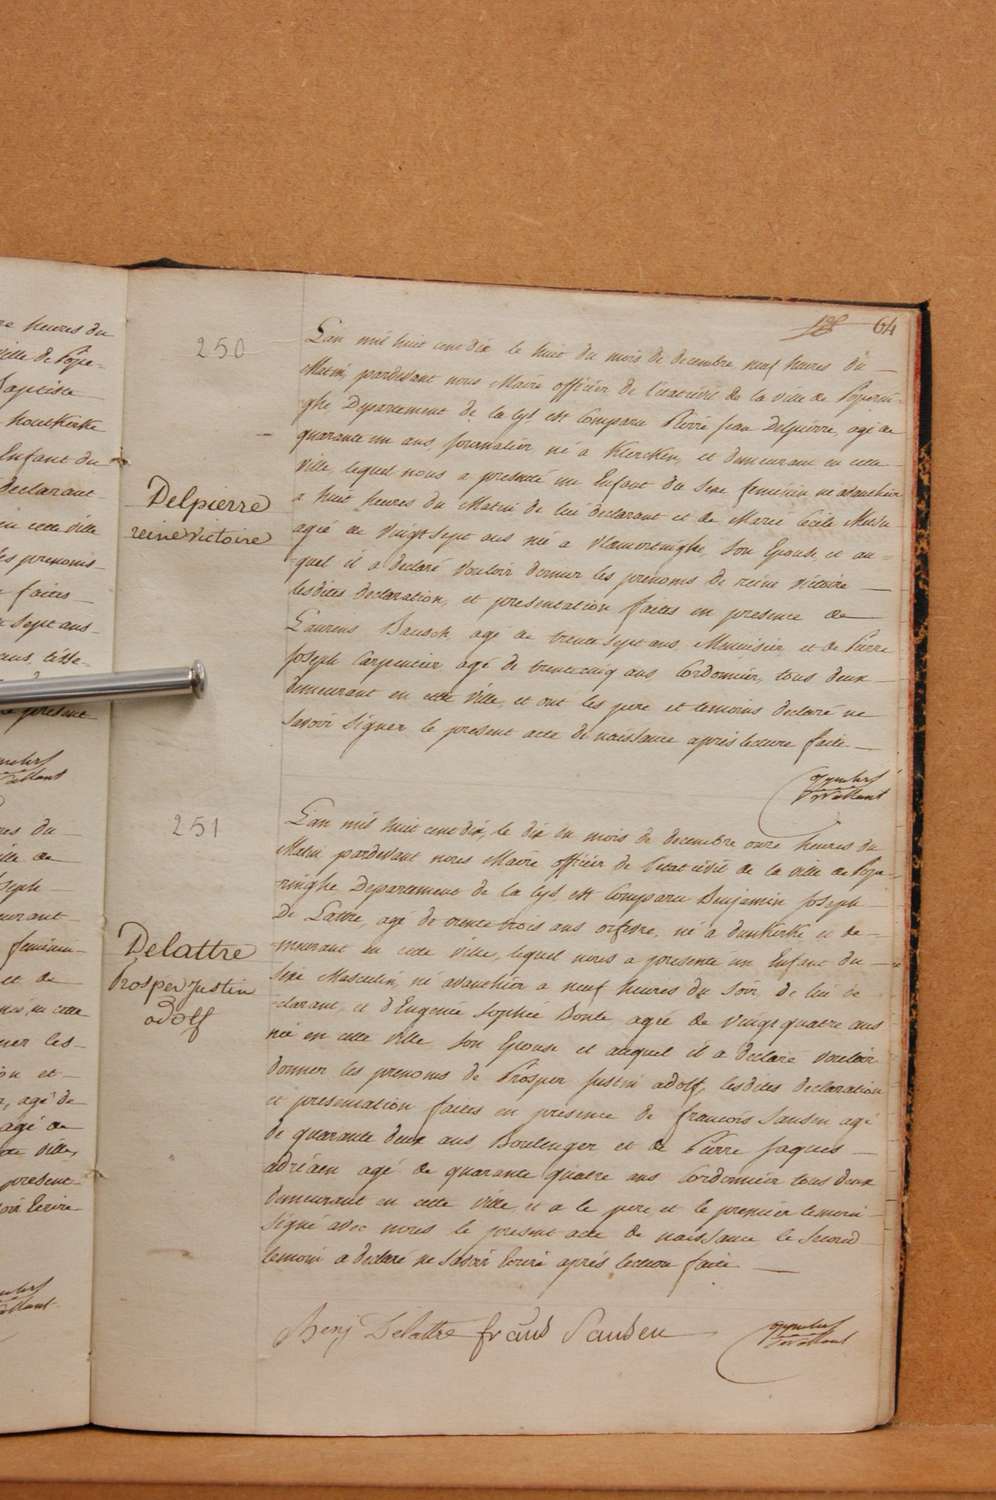 re heures du
ville de Pope-
Baptiste
houtkerke
Enfant du
declarant
en cette ville
les prenoms
faites
sept ans
ans, tisse-
le present
res du
ville de
Joseph
feminin
et de
en cette
ner les
on et
agé de
agé de
ville,
present
64
250
L'an mil huit cent dix le huit du mois de decembre neuf heures du
Matin, pardevant nous Maire officier de l'etat civil de la ville de Poperin-
ghe Departement de la Lys est Comparu Pierre Jean Delpierre, agé de
quarante un ans, journalier né a Klercken, et demeurant en cette
ville, lequel nous a presenté un Enfant du Sexe feminin, né avanthier
a huit heures du Matin de lui declarant et de Marie Cecile
agée de Vingt sept ans née a Vlamertinghe, Son Epouse et au-
quel il a declaré vouloir donner les prénoms de reine victoire
lesdites declaration, et presentation faites en presence de
Laurens Bausch agé de trente sept ans, Menuisier, et de Pierre
Joseph Carpentier agé de trente cinq ans Cordonnier, tous deux
demeurant en cette ville, et ont les pere et temoins declaré ne
Savoir Signer le present acte de naissance après lecture faite
Delpierre
reine victoire
251
L'an mil huit cent dix, le dix du mois de decembre onze heures du
Matin pardevant nous Maire officier de l'etat civil de la ville de Pope-
ringhe Departement de la Lys est Comparu Benjamin Joseph
De Lattre, agé de trente trois ans orfevre, né a dunkerke et de-
meurant en cette ville, lequel nous a presenté un Enfant du
Sexe Masculin, né avanthier a neuf heures du Soir, de lui de
clarant, et d'Eugenie Sophie Bonte agée de Vingt quatre ans
née en cette ville Son Epouse et auquel il a declaré vouloir
donner les prenoms de Prosper Justin adolf, lesdites declaration
et presentation faites en presence de francois Sansen agé
de quarante deux ans Boulenger et de Pierre Jaques
adriaen agé de quarante quatre ans Cordonnier tous deux
demeurant en cette ville, et a le pere, et le premier temoin
Signé avec nous le present acte de naissance le Second
temoin a declaré ne Savoir Ecrire après lecture faite
Delattre
Prosper Justin
adolf
Benj Delattre